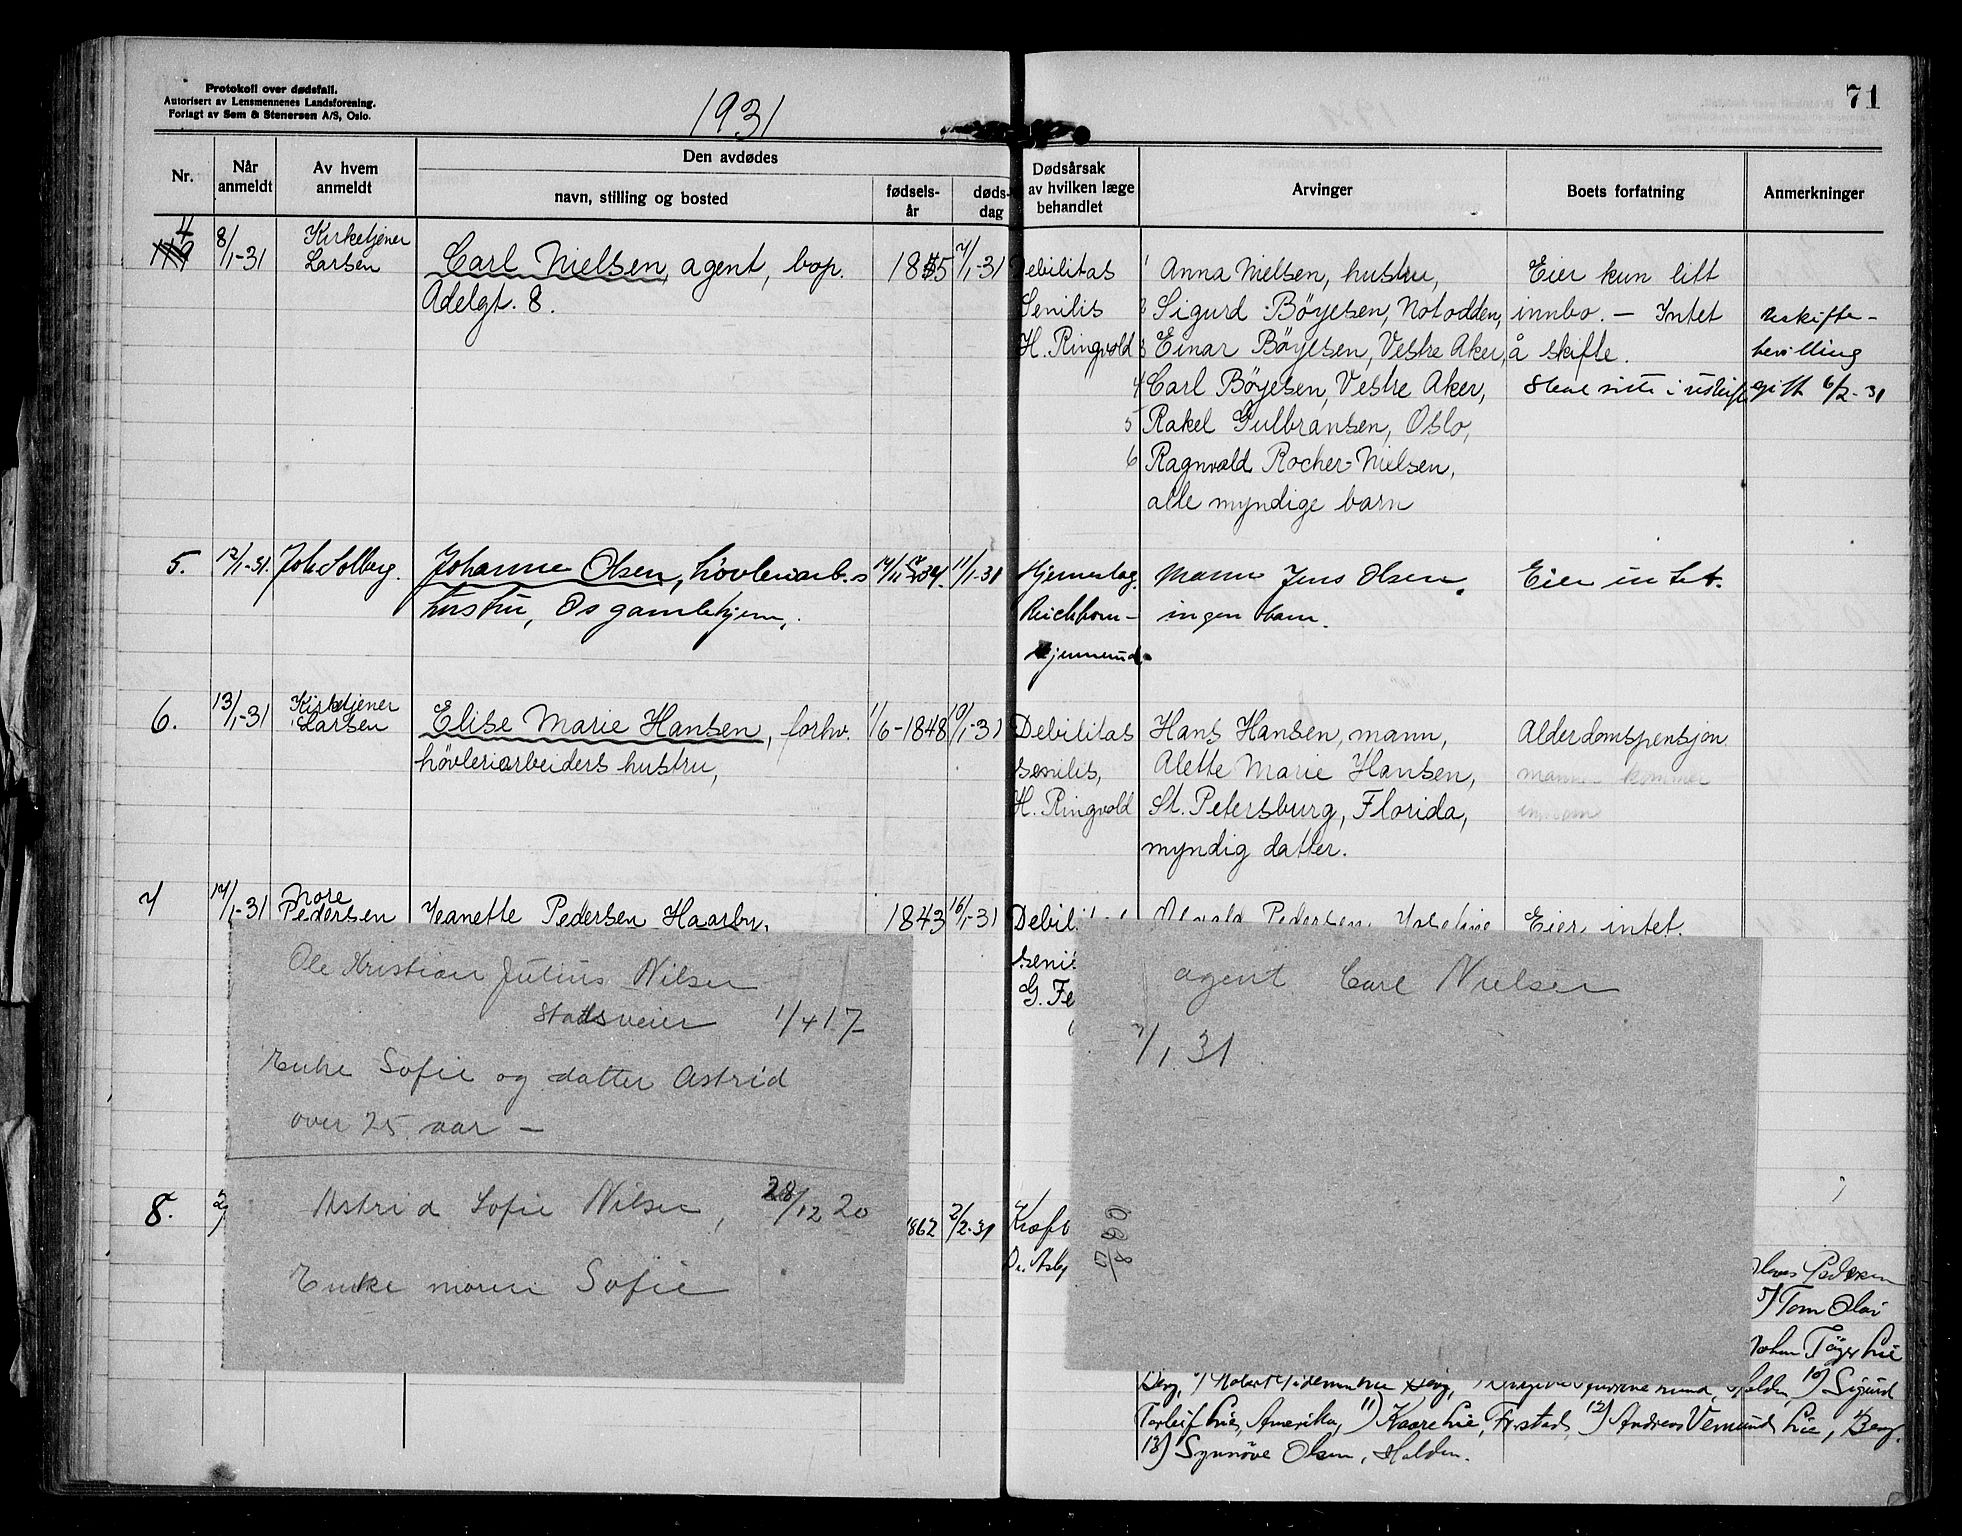 Protokoll over dødsfall.
Autorisert av Lensmennenes Landsforening.
Forlagt av Sem & Stenersen A/S, Oslo.
1931
71
Nr.
Når anmeldt
Av hvem anmeldt
Den avdødes
navn, stilling og bosted
fødselsår
dødsdag
Dødsårsak
av hvilken læge
behandlet
Arvinger
Boets forfatning
Anmerkninger
4
8/1-31
Kirketjener
Larsen
Carl Nielsen, agent, bop.
Adelgt. 8.
1855
7/1-31
Debilitas
Senilis
H. Ringvold
1 Anna Nielsen, hustru,
2 Sigurd Bøyesen, Notodden,
3 Einar Bøyesen, Vestre Aker,
4 Carl Bøyesen, Vestre Aker,
5 Rakel Gulbransen, Oslo,
6 Ragnvald Rocher-Nielsen,
alle myndige barn
Eier kun litt
innbo. - Intet
å skifte.
Skal sitte i uskifte
Uskifte-
bevilling
gitt 6/2-31
5.
12/1-31.
Joh. Solberg.
Johanne Olsen, høvleriarb.s
hustru, Os gamlehjem.
11/1-31
Hjerneslag.
Reichborn-
Kjennerud.
Mann Jens Olsen.
ingen barn.
Eier intet.
6.
13/1-31
Kirketjener
Larsen
Elise Marie Hansen, forhv.
høvleriarbeiders hustru,
1/6-1848
10/1-31
Debilitas
senilis,
H. Ringvold
Hans Hansen, mann,
Alette Marie Hansen,
St. Petersburg, Florida,
myndig datter.
Alderdomspensjon
mannen kommer
7
17/1-31
Nore
Pedersen
Jeanette Pedersen Haarby,
1843
16/1-31
Debilitas
senilis
G. Fe
Pedersen, Josefine
Eier intet.
Ole Kristian Julius Nilsen
Stadsveier 1/4 17
Enke Sofie og datter Astrid
over 25 aar -
Astrid Sofie Nilsen, 28/12 20
Enke moren Sofie
agent Carl Nielsen
7/1 31
8.
1862
2/2-31
Kræft
Dr. Asbj
Pedersen
5) Tom Olav
Johan Tiger Lie
Berg, Halden, 10) Sigurd
Torleif Lie, Amerika, 11) Kaare Lie, Fr.stad, 12) Andreas Vemund Lie, Berg.
13) Synnøve Olsen, Halden.